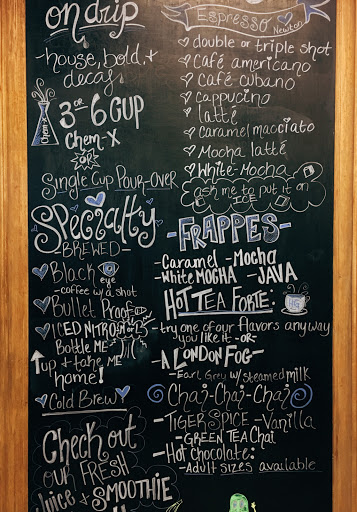 on drip
-house, bold, +
decaf-
3 or 6 CUP
Chem-X
Chem-X
OR
Single Cup Pour-Over
SPecialty
-BREWED-
Black eye
-coffee w/a shot
Bullet Proof
ICED NITRO or
Bottle ME
up + take ME
home!
Cold Brew
Check out
our FRESH
Juice + SMOOTHIE
Menu
Espresso
Newton
double or triple shot
Café americano
Café cubano
cappucino
latté
Caramel macciato
Mocha latté
White-Mocha
ask me to put it on
ICE
-FRAPPES-
-Caramel -Mocha
-White MOCHA -JAVA
HOT TEA FORTE:
-try one of our flavors any way
you like it -OR-
A LONDON FOG-
-Earl Grey w/ steamed milk
Chai-Chai-Chai
-TIGER SPICE -Vanilla
-GREEN TEA Chai
-Hot Chocolate:
-Adult sizes available